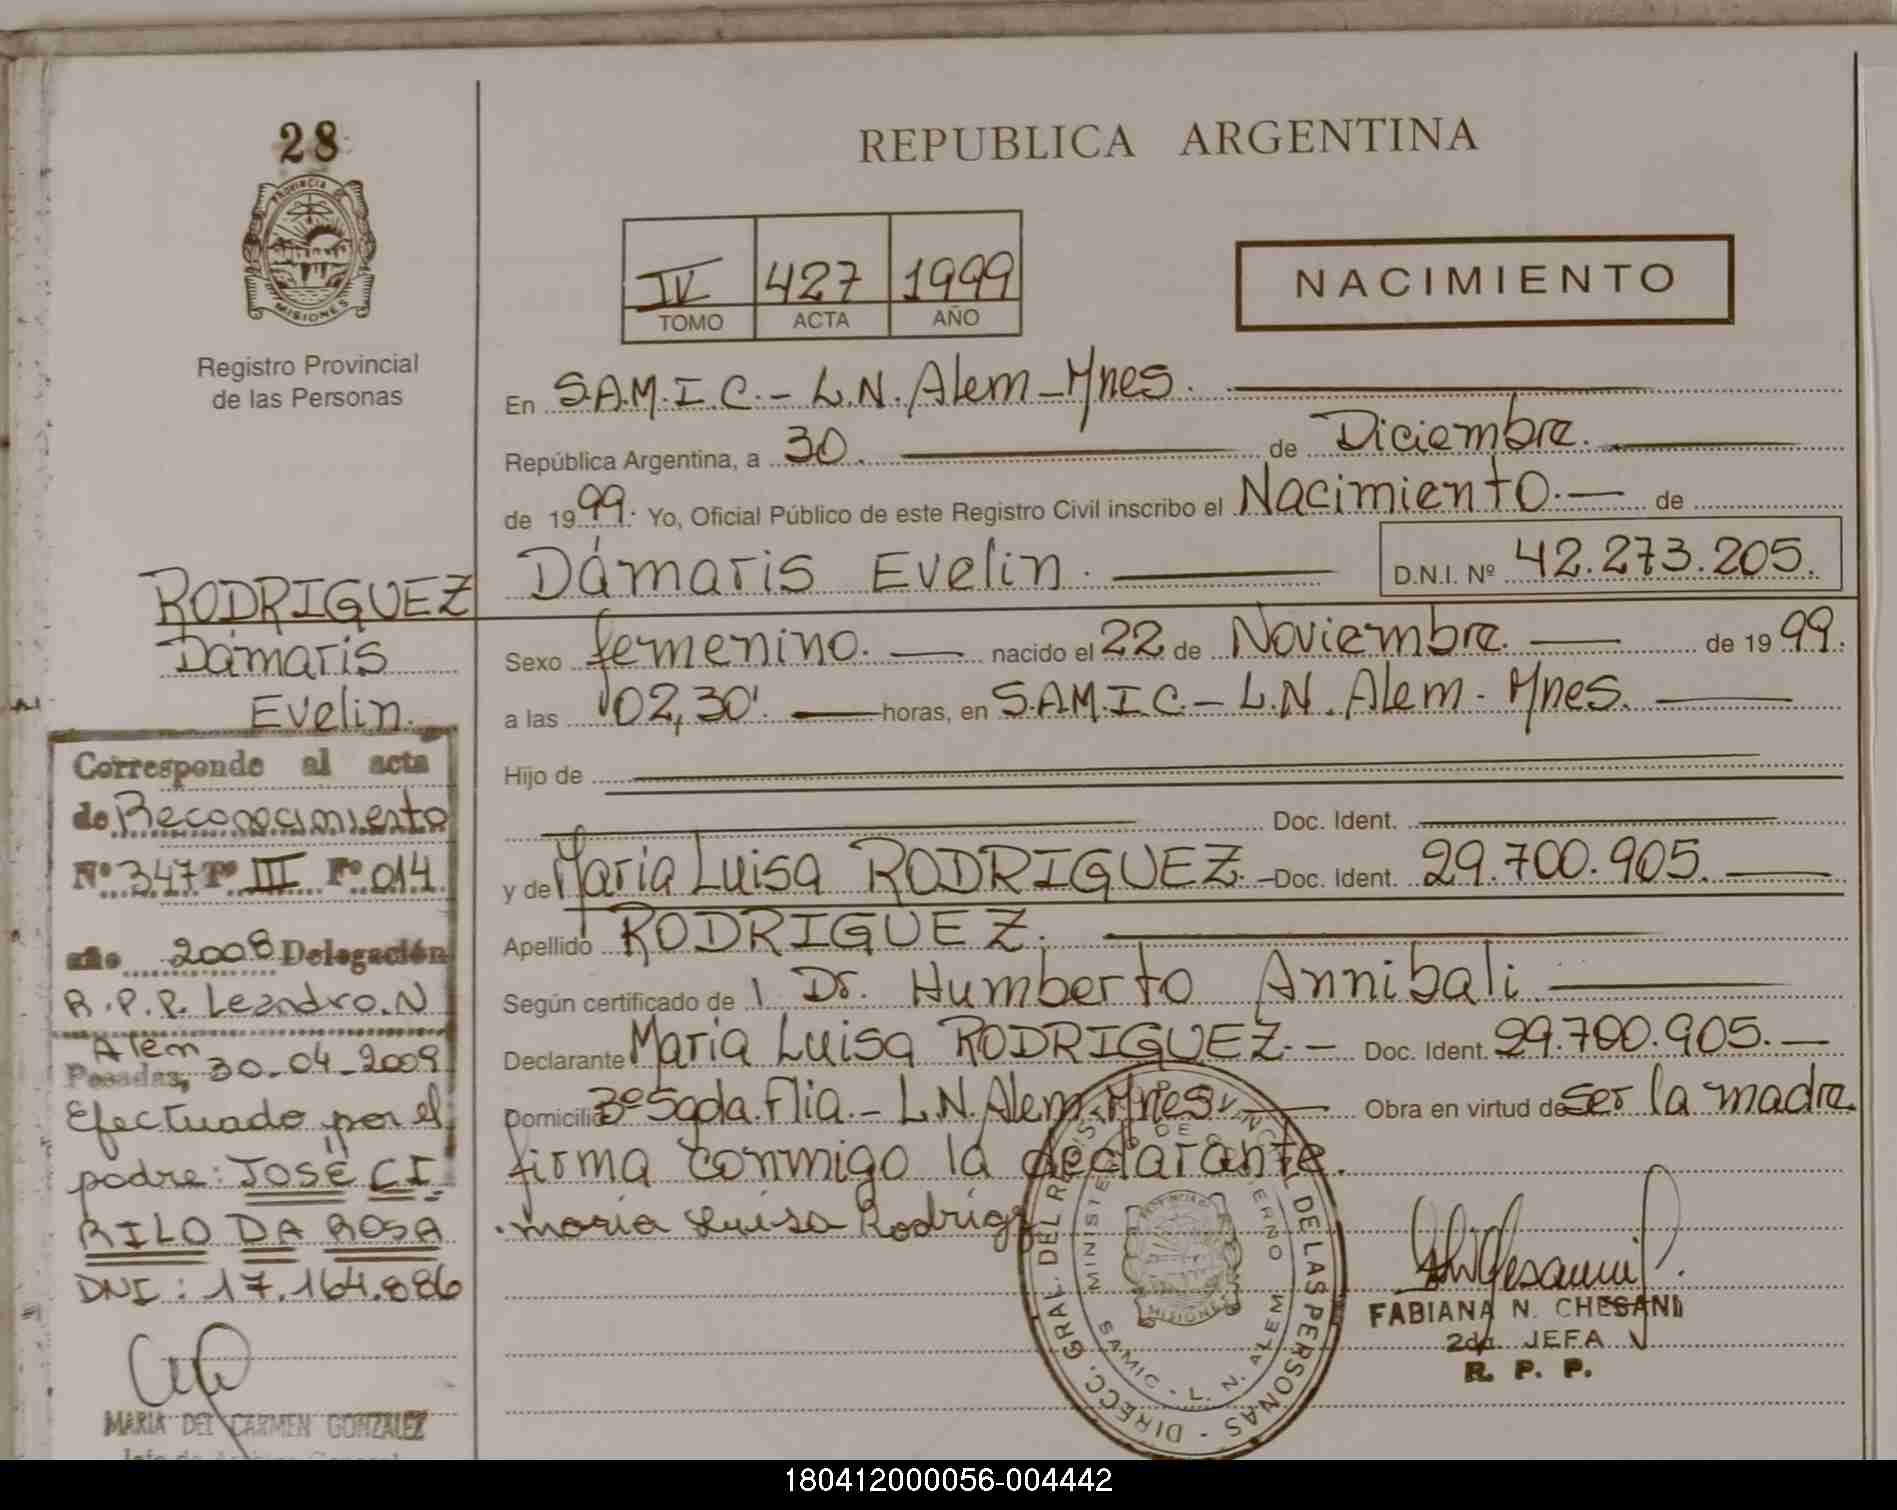 28
PROVINCIA DE
MISIONES
Registro Provincial
de las Personas
RODRIGUEZ
Dámaris
Evelin.
Corresponde al acta
de Reconocimiento
Nº 347 Tº III Fº 014
año 2008 Delegación
R.P.P. Leandro. N
Alem
Posadas, 30-04-2009
Efectuado por el
padre: JOSÉ CI
RILO DA ROSA
DNI: 17.164.886
MARIA DEL CARMEN GONZALEZ
REPUBLICA ARGENTINA
IV 427 1999
TOMO ACTA AÑO
NACIMIENTO
En S.A.M.I.C.- L.N. Alem - Mnes.
República Argentina, a 30. de Diciembre.
de 1999. Yo, Oficial Público de este Registro Civil inscribo el Nacimiento. de
Dámaris Evelin. D.N.I. Nº 42.273.205.
Sexo femenino. nacido el 22 de Noviembre. de 1999.
a las 02,30'. horas, en S.A.M.I.C.- L.N. Alem - Mnes.
Hijo de
Doc. Ident.
y de María Luisa RODRIGUEZ. Doc. Ident. 29.700.905.
Apellido RODRIGUEZ.
Según certificado de Dr. Humberto Annibali
Declarante María Luisa RODRIGUEZ. - Doc. Ident. 29.700.905. -
Domicilio 3º Sgda. Flia. - L.N. Alem - Mnes. Obra en virtud de ser la madre
firma conmigo la declarante.
maria Luisa Rodrigz
DIRECC. GRAL. DEL DE LAS PERSONAS
SAMIC - L. N. ALEM
MISIONES
FABIANA N. CHESANI
2da JEFA
R. P. P.
180412000056-004442